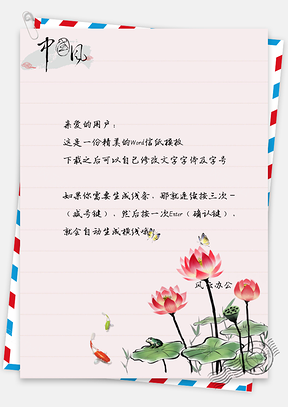 中国风
亲爱的用户：
这是一份精美的Word信纸模板
下载之后可以自己修改文字字体及字号
如果你需要生成线条，那就连续按三次－
（减号键），然后按一次Enter（确认键），
就会自动生成横线哦
风云办公